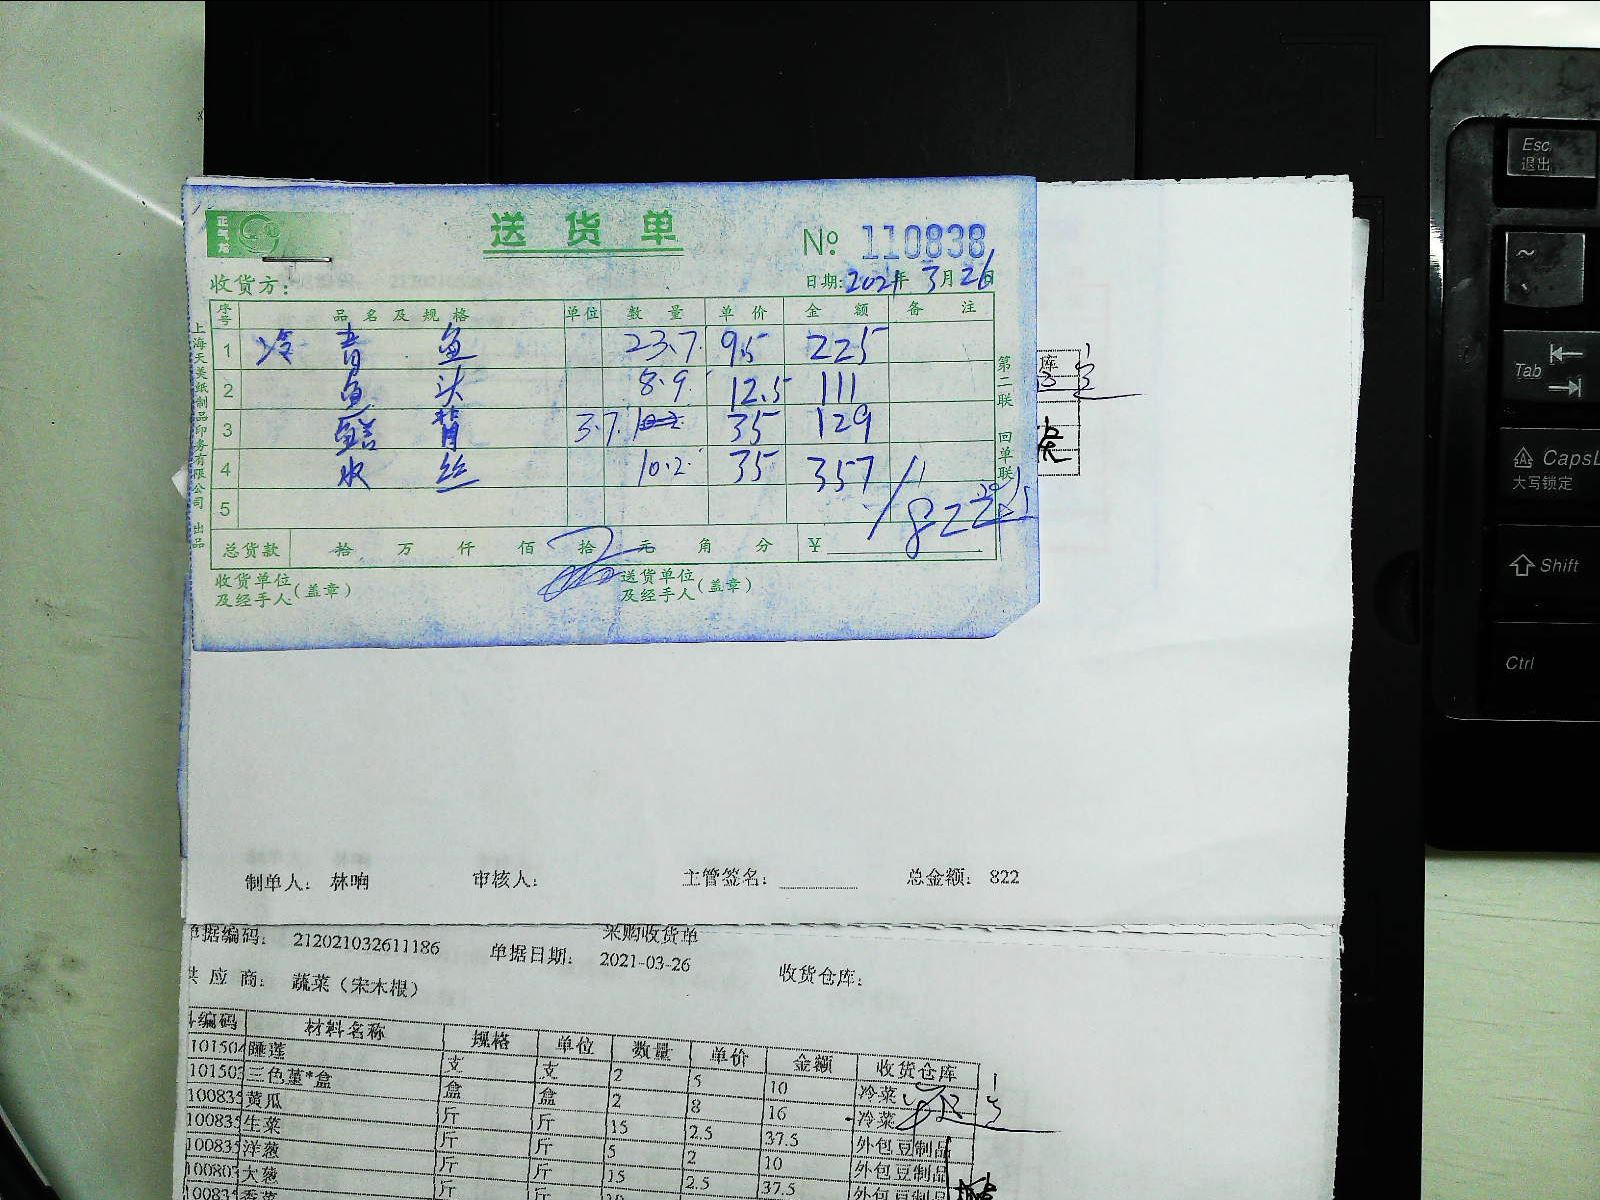 正气龙
送货单
№ 110838
收货方：
日期：2021年3月26日
序号 品名及规格 单位 数量 单价 金额 备注
1 冷 青鱼 23.7 9.5 225
2 鱼头 8.9 12.5 111
3 鳝背 3.7 35 129
4 水丝 10.2 35 357
5
822
总货款 拾 万 仟 佰 拾 元 角 分 ¥
收货单位及经手人（盖章）
送货单位及经手人（盖章）
上海天美纸制品印务有限公司 出品
第二联 回单联
库
制单人： 林喃 审核人： 主管签名： 总金额： 822
采购收货单
单据编码： 212021032611186 单据日期： 2021-03-26 收货仓库：
供应商： 蔬菜（宋木根）
编码 材料名称 规格 单位 数量 单价 金额 收货仓库
10150 睡莲 支 支 2 5 10 冷菜
10150 三色堇*盒 盒 盒 2 8 16 冷菜
10083 黄瓜 斤 斤 15 2.5 37.5 外包豆制品
10083 生菜 斤 斤 5 2 10 外包豆制品
10083 洋葱 斤 斤 15 2.5 37.5 外包豆制品
10080 大葱 斤 斤
10083 香菜
Esc
退出
~
Tab
CapsL
大写锁定
Shift
Ctrl